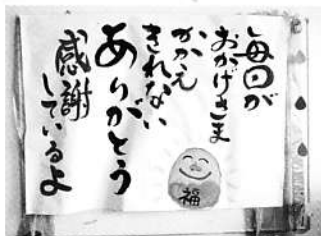 毎日が
おかげさま
かかえ
きれない
ありがとう
感謝
しているよ
福